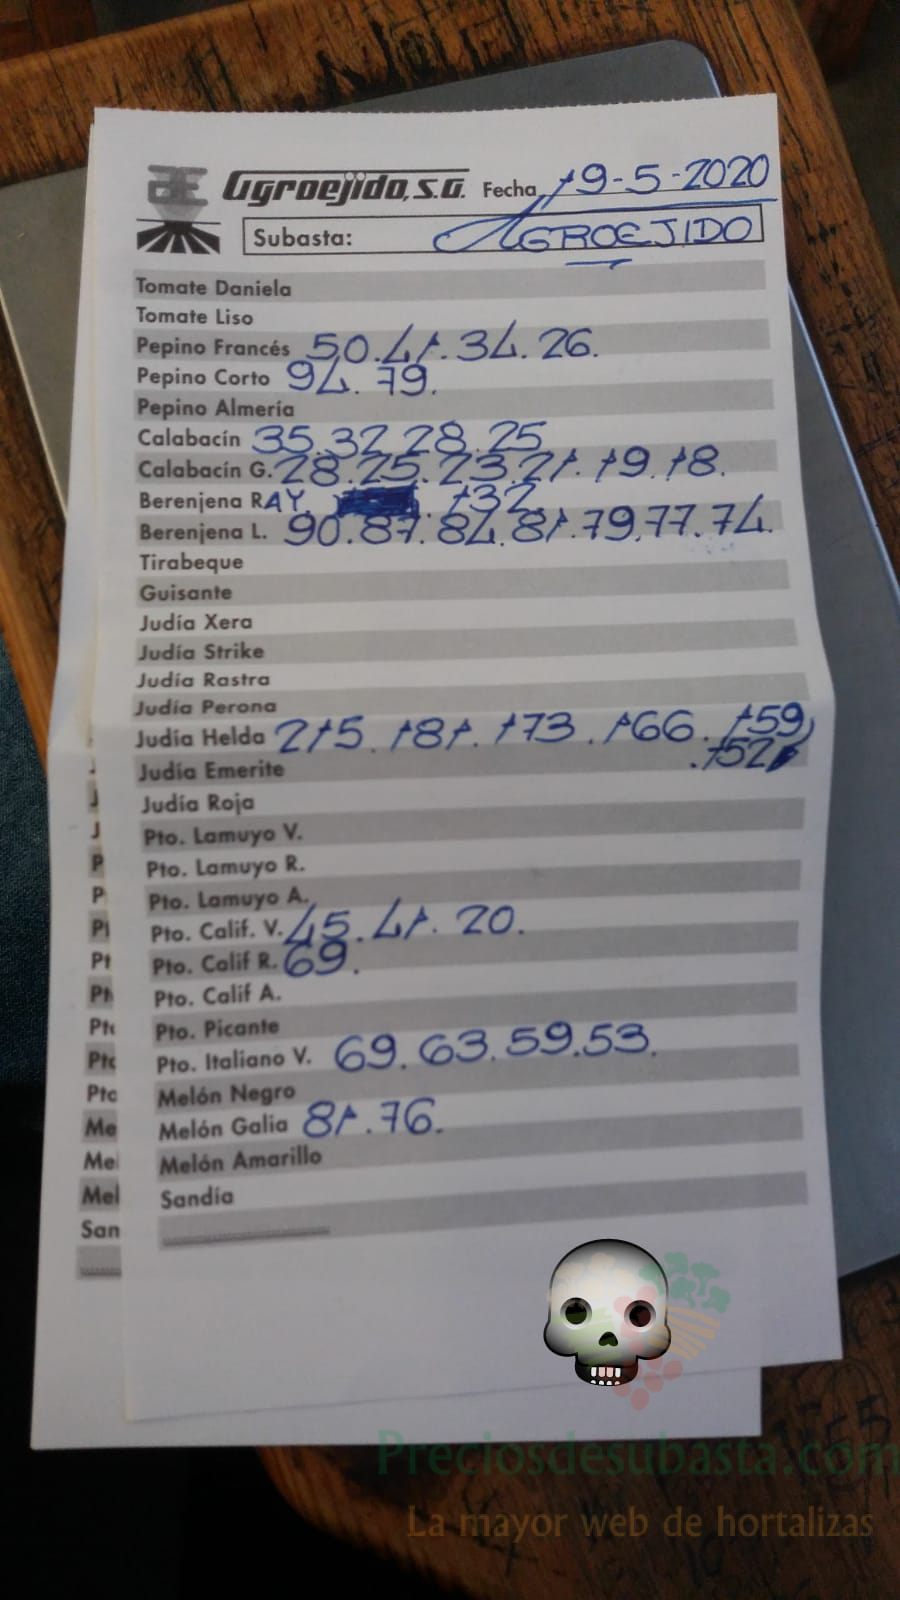 Agroejido, S.A. Fecha 19-5-2020
Subasta: AGROEJIDO
Tomate Daniela
Tomate Liso
Pepino Francés 50.41.34.26.
Pepino Corto 94.79.
Pepino Almería
Calabacín 35.32.28.25
Calabacín G. 28.25.23.21.19.18.
Berenjena RAY. 132.
Berenjena L. 90.87.84.81.79.77.74.
Tirabeque
Guisante
Judía Xera
Judía Strike
Judía Rastra
Judía Perona
Judía Helda 215.181.173.166.159
.152
Judía Emerite
Judía Roja
Pto. Lamuyo V.
Pto. Lamuyo R.
Pto. Lamuyo A.
Pto. Calif. V. 45.41.20.
Pto. Calif R. 69.
Pto. Calif A.
Pto. Picante
Pto. Italiano V. 69.63.59.53.
Melón Negro
Melón Galia 81.76.
Melón Amarillo
Sandía
J
J
P
P
Pt
Pt
Pt
Pto
Pto
Me
Mel
Mel
San
Preciosdesubasta.com
La mayor web de hortalizas